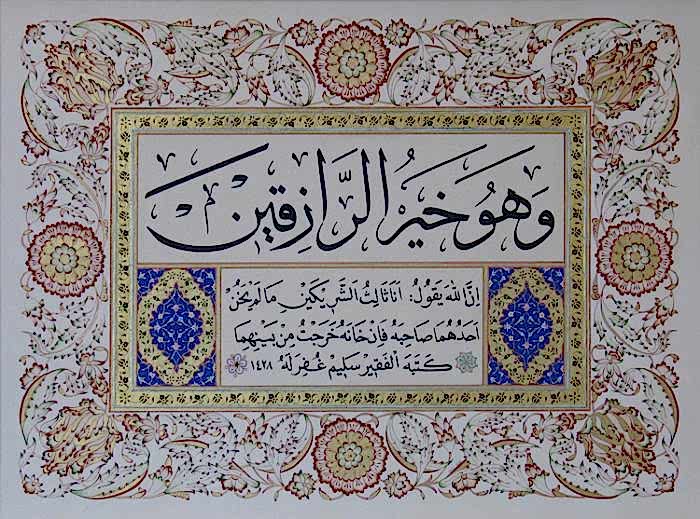 وَهُوَ خَيْرُ الرَّازِقِينَ
اِنَّ اللهَ يَقُولُ: اَنَا ثَالِثُ الشَّرِيكَيْنِ مَا لَمْ يَخُنْ
اَحَدُهُمَا صَاحِبَهُ فَاِنْ خَانَهُ خَرَجْتُ مِنْ بَيْنِهِمَا
كَتَبَهُ الْفَقِيرُ سَلِيمْ غُفِرَ لَهُ ١٤٢٨